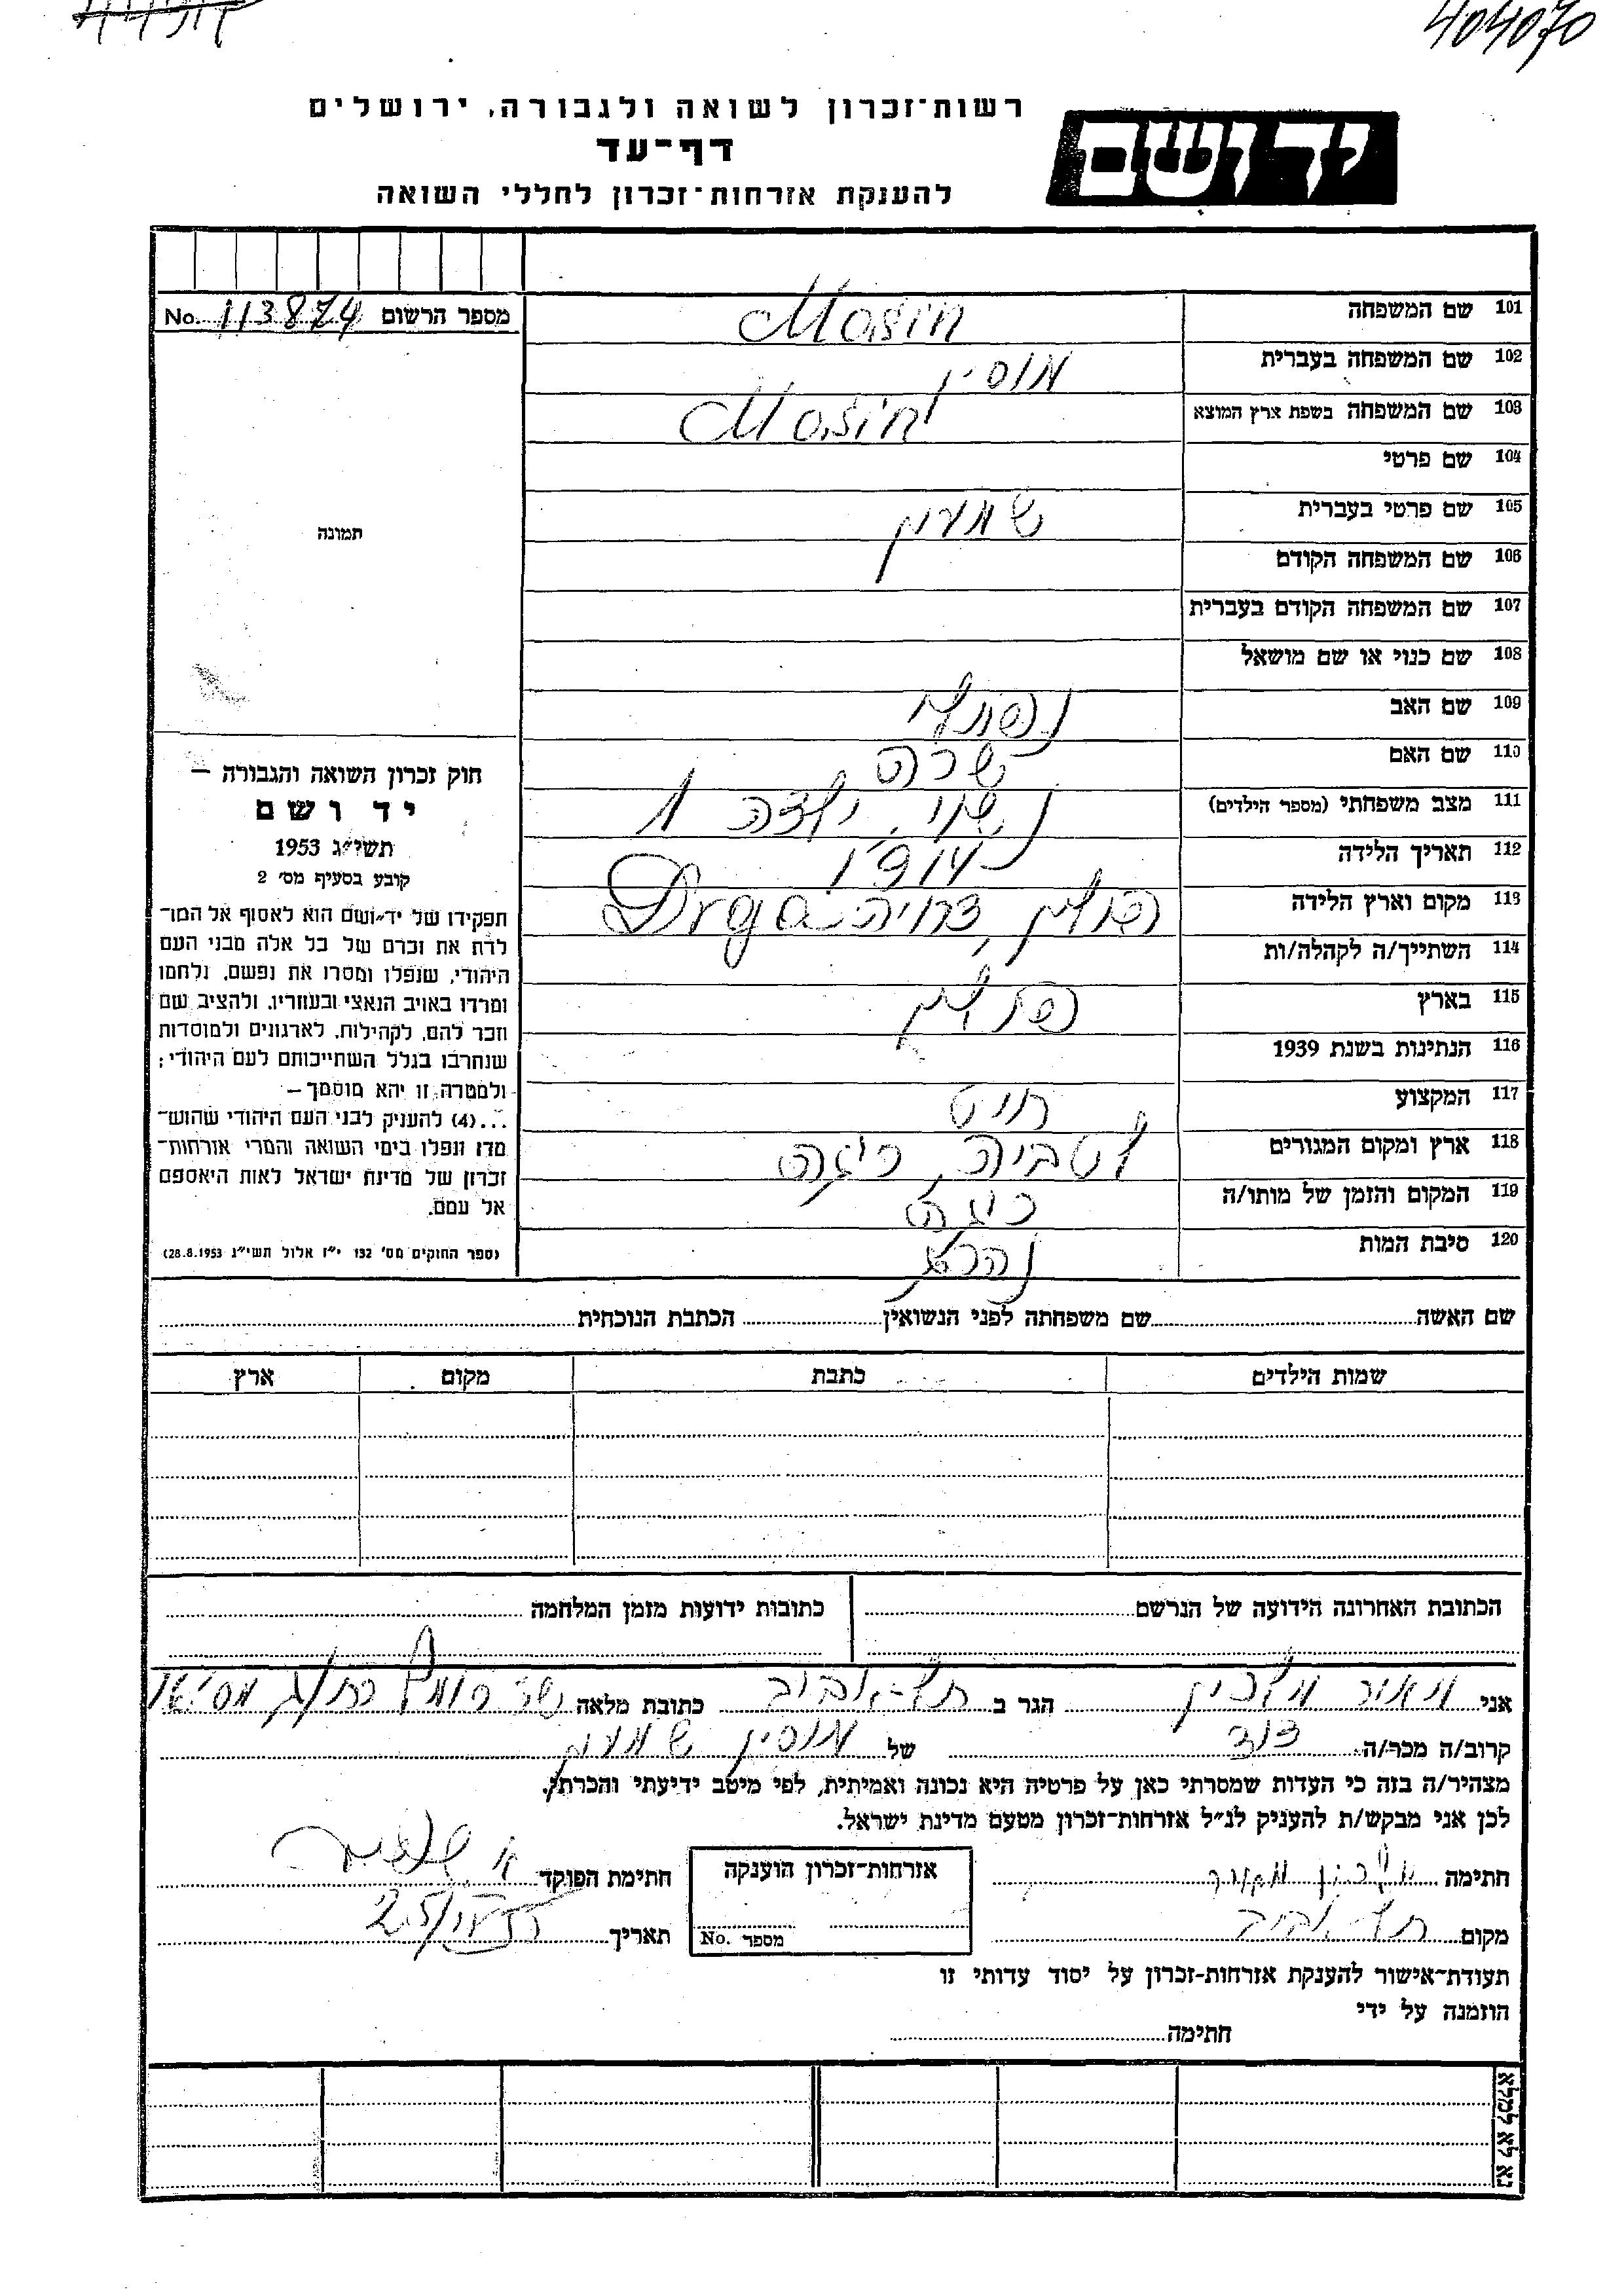 404070
יד ושם
רשות־זכרון לשואה ולגבורה, ירושלים
דף־עד
להענקת אזרחות־זכרון לחללי השואה
מספר הרשום No. 113874
101 שם המשפחה Mosin
102 שם המשפחה בעברית מוסין
103 שם המשפחה בשפת ארץ המוצא Mosin
104 שם פרטי
105 שם פרטי בעברית שמעון
106 שם המשפחה הקודם
107 שם המשפחה הקודם בעברית
108 שם כנוי או שם מושאל
109 שם האב נפתלי
110 שם האם שרה
111 מצב משפחתי (מספר הילדים) נשוי, ילדה 1
112 תאריך הלידה
113 מקום וארץ הלידה פולין, דרויה Druja
114 השתייך/ה לקהלה/ות
115 בארץ פולין
116 הנתינות בשנת 1939
117 המקצוע חיט
118 ארץ ומקום המגורים לטביה, ריגה
119 המקום והזמן של מותו/ה ריגה
120 סיבת המות נהרג
תמונה
חוק זכרון השואה והגבורה —
יד ושם
תשי״ג 1953
קובע בסעיף מס׳ 2
תפקידו של יד־ושם הוא לאסוף אל המו־
לדת את זכרם של כל אלה מבני העם
היהודי, שנפלו ומסרו את נפשם, נלחמו
ומרדו באויב הנאצי ובעוזריו, ולהציב שם
וזכר להם, לקהילות, לארגונים ולמוסדות
שנחרבו בגלל השתייכותם לעם היהודי;
ולמטרה זו יהא מוסמך —
...(4) להעניק לבני העם היהודי שהוש־
מדו ונפלו בימי השואה והמרי אזרחות־
זכרון של מדינת ישראל לאות היאספם
אל עמם.
(ספר החוקים מס׳ 132 י״ז אלול תשי״ג 28.8.1953)
שם האשה שם משפחתה לפני הנשואין הכתבת הנוכחית
שמות הילדים כתבת מקום ארץ
הכתובת האחרונה הידועה של הנרשם כתובות ידועות מזמן המלחמה
אני הגר ב תל-אביב כתובת מלאה
קרוב/ה מכר/ה דוד של מוסין שמעון
מצהיר/ה בזה כי העדות שמסרתי כאן על פרטיה היא נכונה ואמיתית, לפי מיטב ידיעתי והכרתי.
לכן אני מבקש/ת להעניק לנ״ל אזרחות־זכרון מטעם מדינת ישראל.
חתימה אזרחות־זכרון הוענקה חתימת הפוקד
מקום תל-אביב מספר No. תאריך
תעודת־אישור להענקת אזרחות־זכרון על יסוד עדותי זו
הוזמנה על ידי
חתימה
נא לא למלא